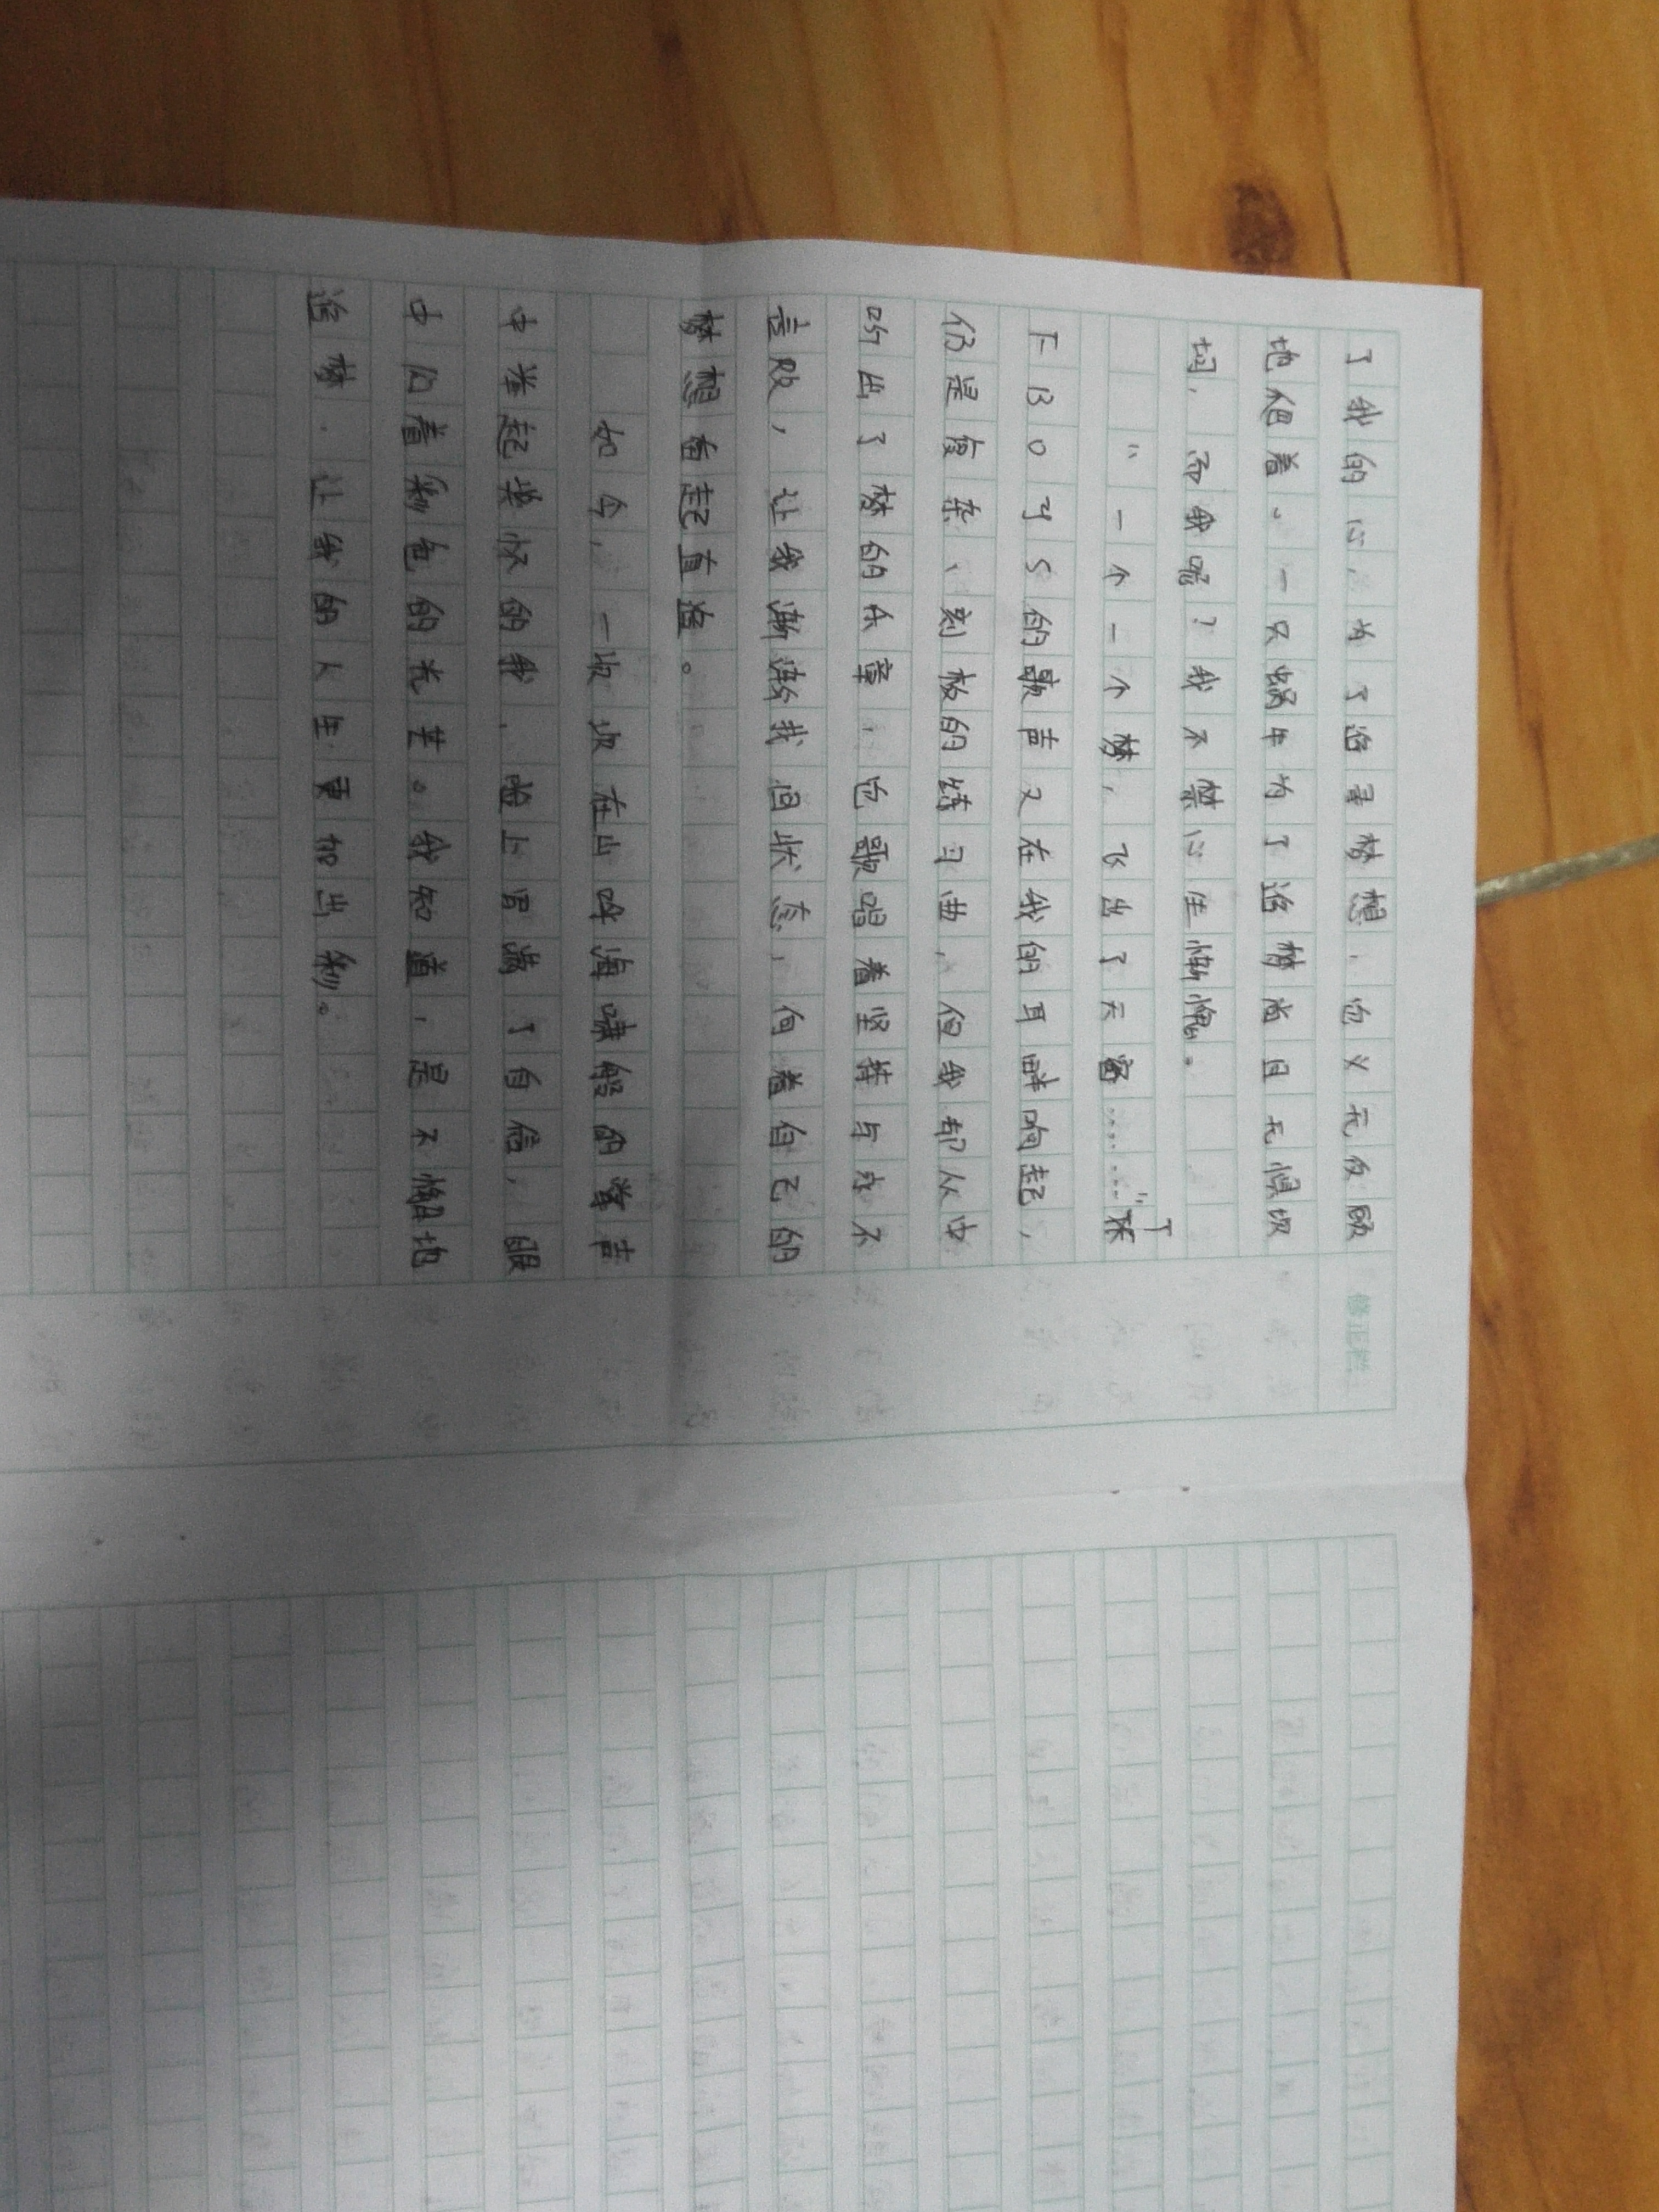 了我的心。为了追寻梦想,也义无反顾
地爬着。一只蜗牛为了追梦尚且无惧坎
坷,而我呢?我不禁心生惭愧。
“一个一个梦,飞出了天窗……”
TFBOYS的歌声又在我的耳畔响起,
仍是复杂、刻板的练习曲,但我却从中
听出了梦的乐章,也歌唱着坚持与永不
言败,让我渐渐找回状态,向着自己的
梦想奋起直追。
如今,一次次在山呼海啸般的掌声
中举起奖杯的我,脸上写满了自信,眼
中闪着彩色的光芒。我知道,是不懈地
追梦,让我的人生更加出彩。
修正栏